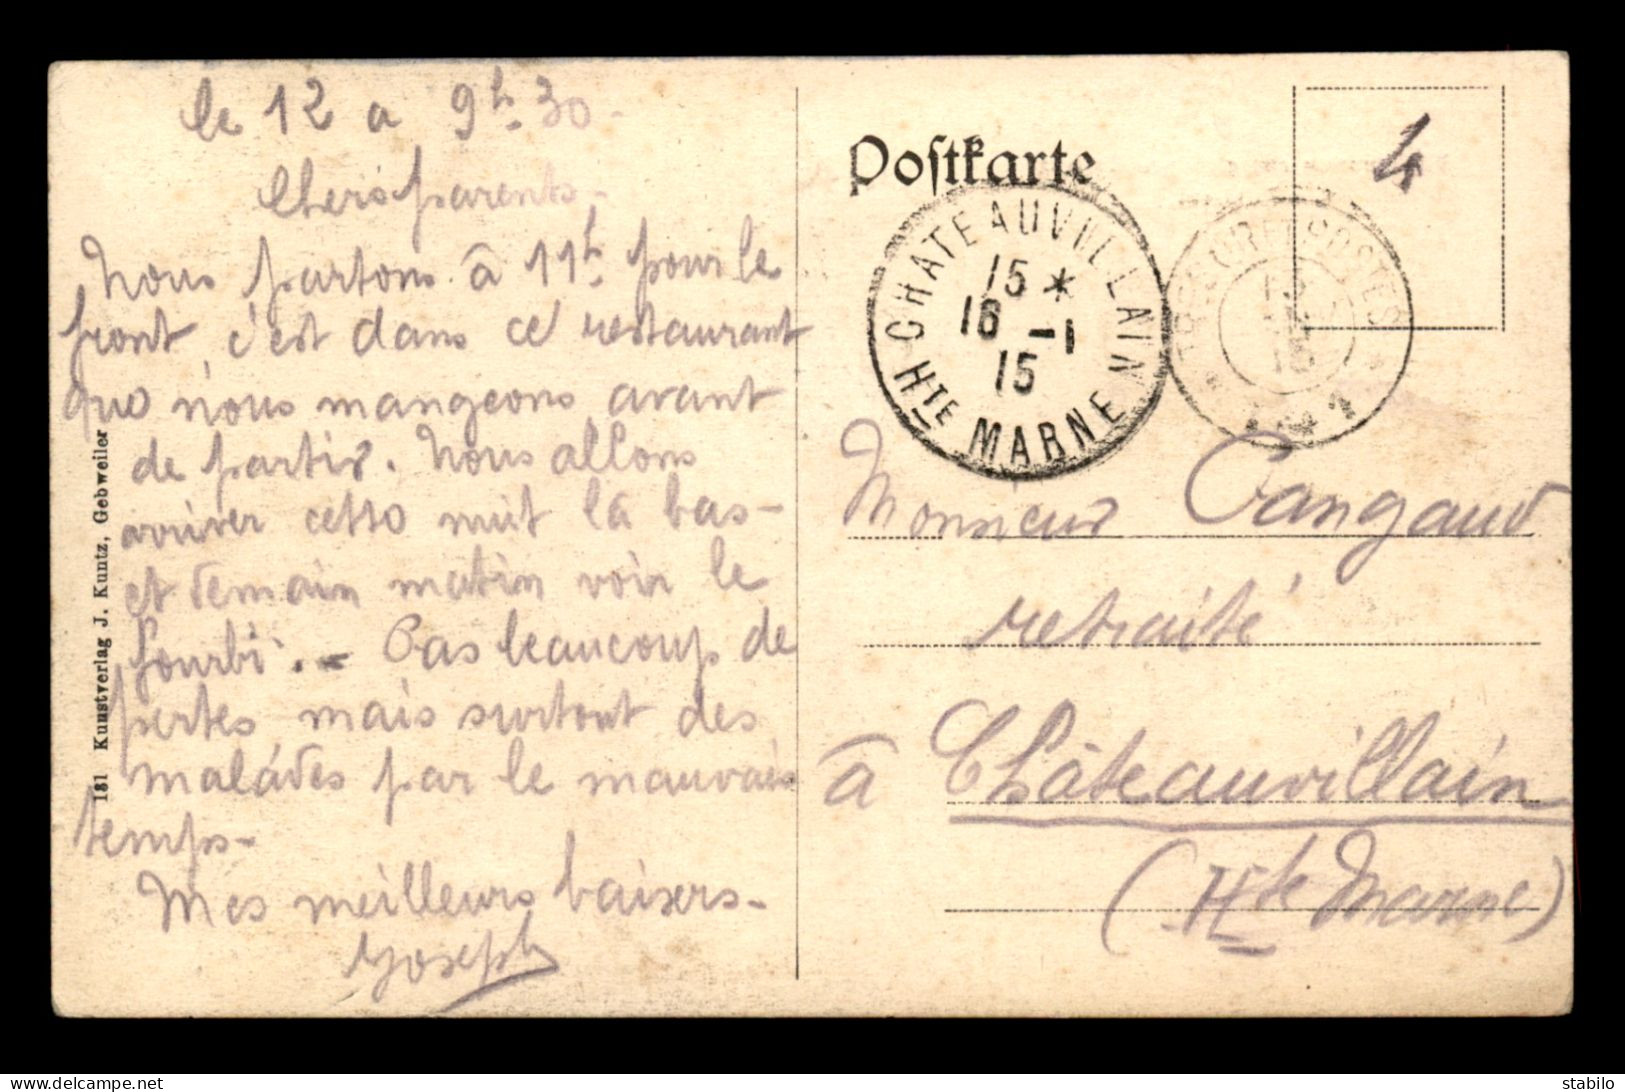 le 12 a 9h.30.
Chers parents.
Nous partons à 11h. pour le
front, c'est dans ce restaurant
que nous mangeons avant
de partir. Nous allons
arriver cette nuit là bas-
et demain matin voir le
fourbi.- Pas beaucoup de
pertes mais surtout des
malades par le mauvais
temps-
Mes meilleurs baisers-
Joseph
131 Kunstverlag J. Kuntz, Gebweiler
Postkarte
4
CHATEAUVILLAIN
15 *
16 -1
15
HTE MARNE
ET POSTES
15
Monsieur Cangaud
retraité
à Châteauvillain
(Hte Marne)
stabilo